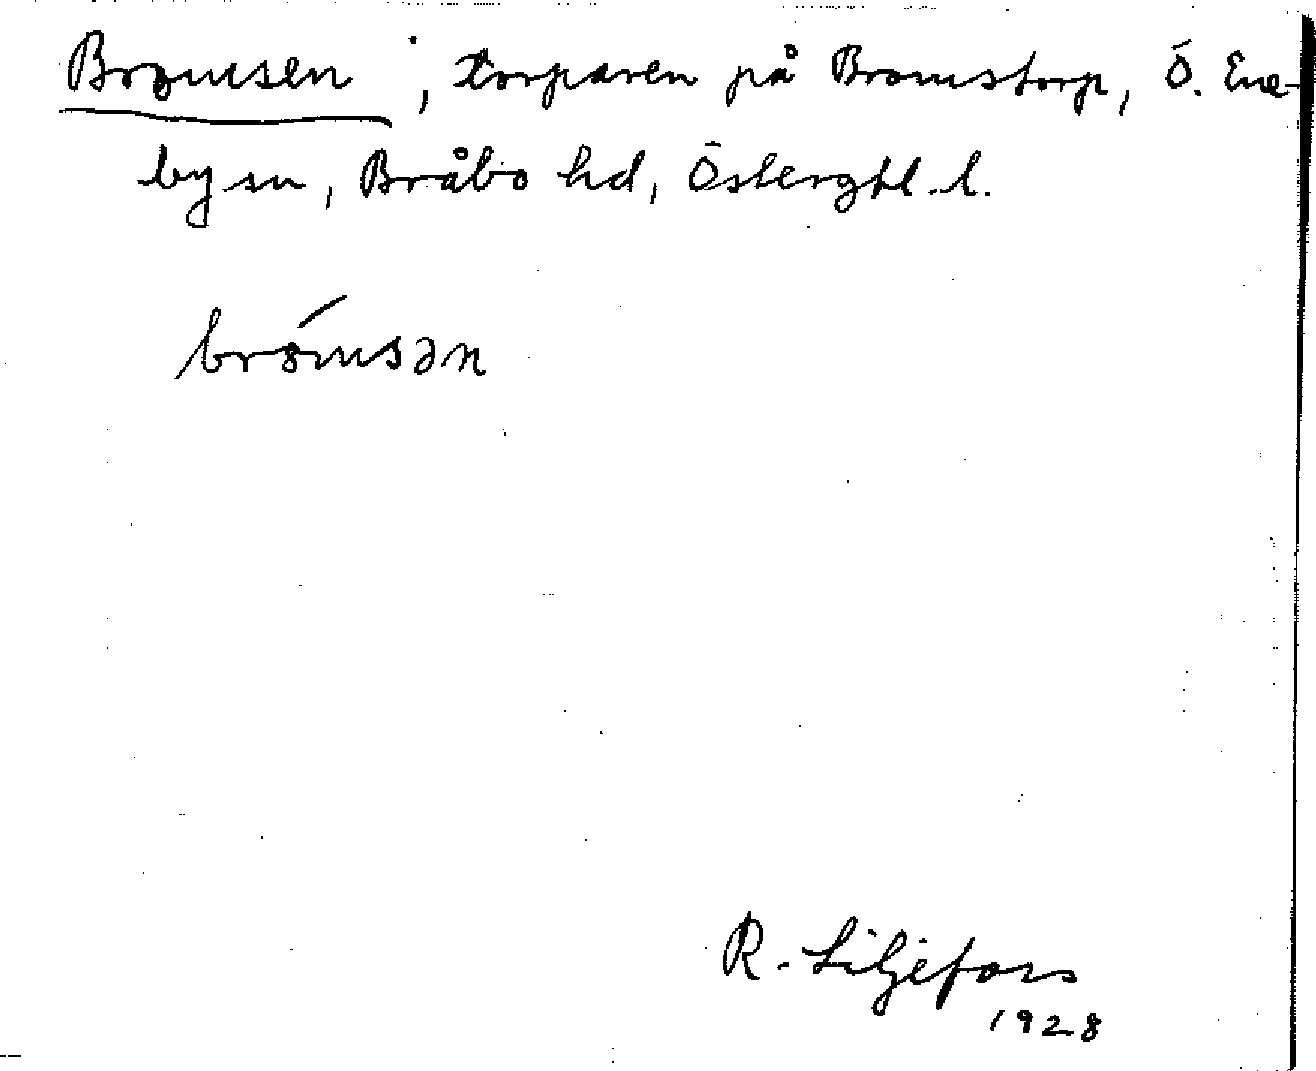 Bromsen, torparen på Bromstorp, Ö. Ene-
by sn, Bråbo hd, Östergtl. l.
brómsən
R. Liljefors
1928